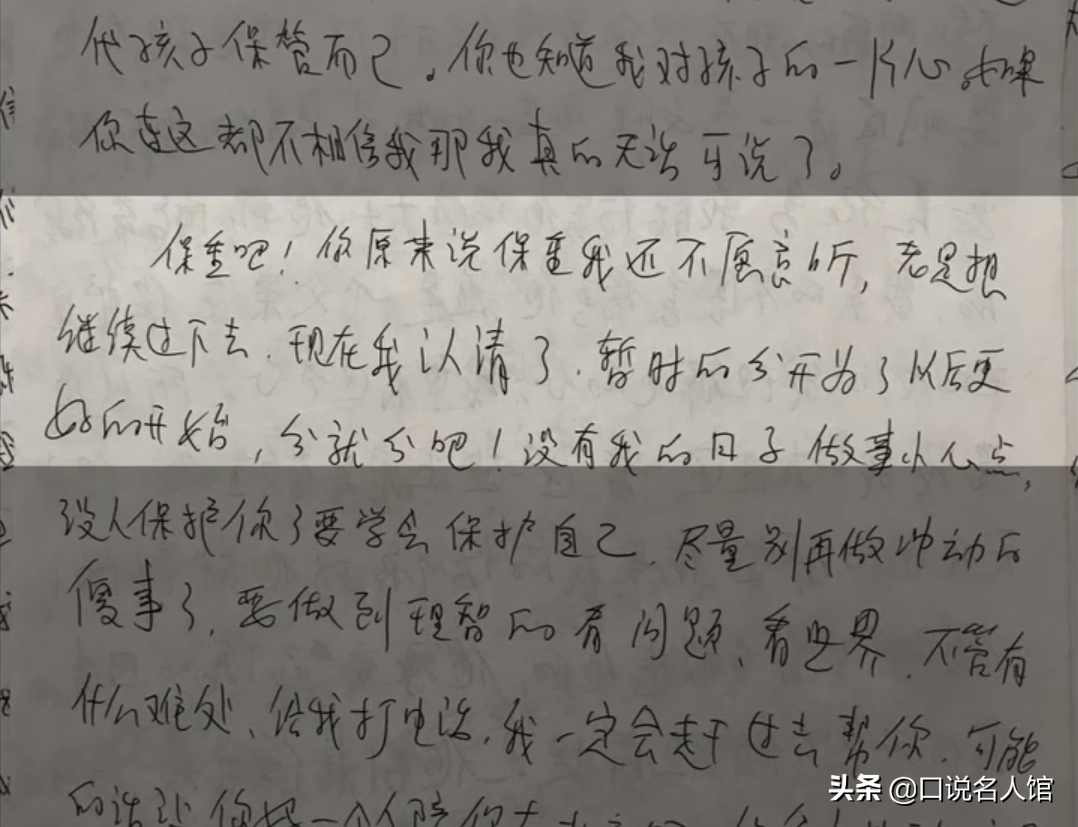 代孩子保管而已。你也知道我对孩子的一片心。如果
你连这都不相信我那我真的无话可说了。
保重吧！你原来说保重我还不愿意听，老是想
继续过下去．现在我认请了．暂时的分开为了以后更
好的开始，分就分吧！没有我的日子做事小心点，
没人保护你了要学会保护自己．尽量别再做冲动的
傻事了，要做到理智的看问题、看世界．不管有
什么难处、给我打电话．我一定会赶过去帮你．可能
的话
头条 @口说名人馆